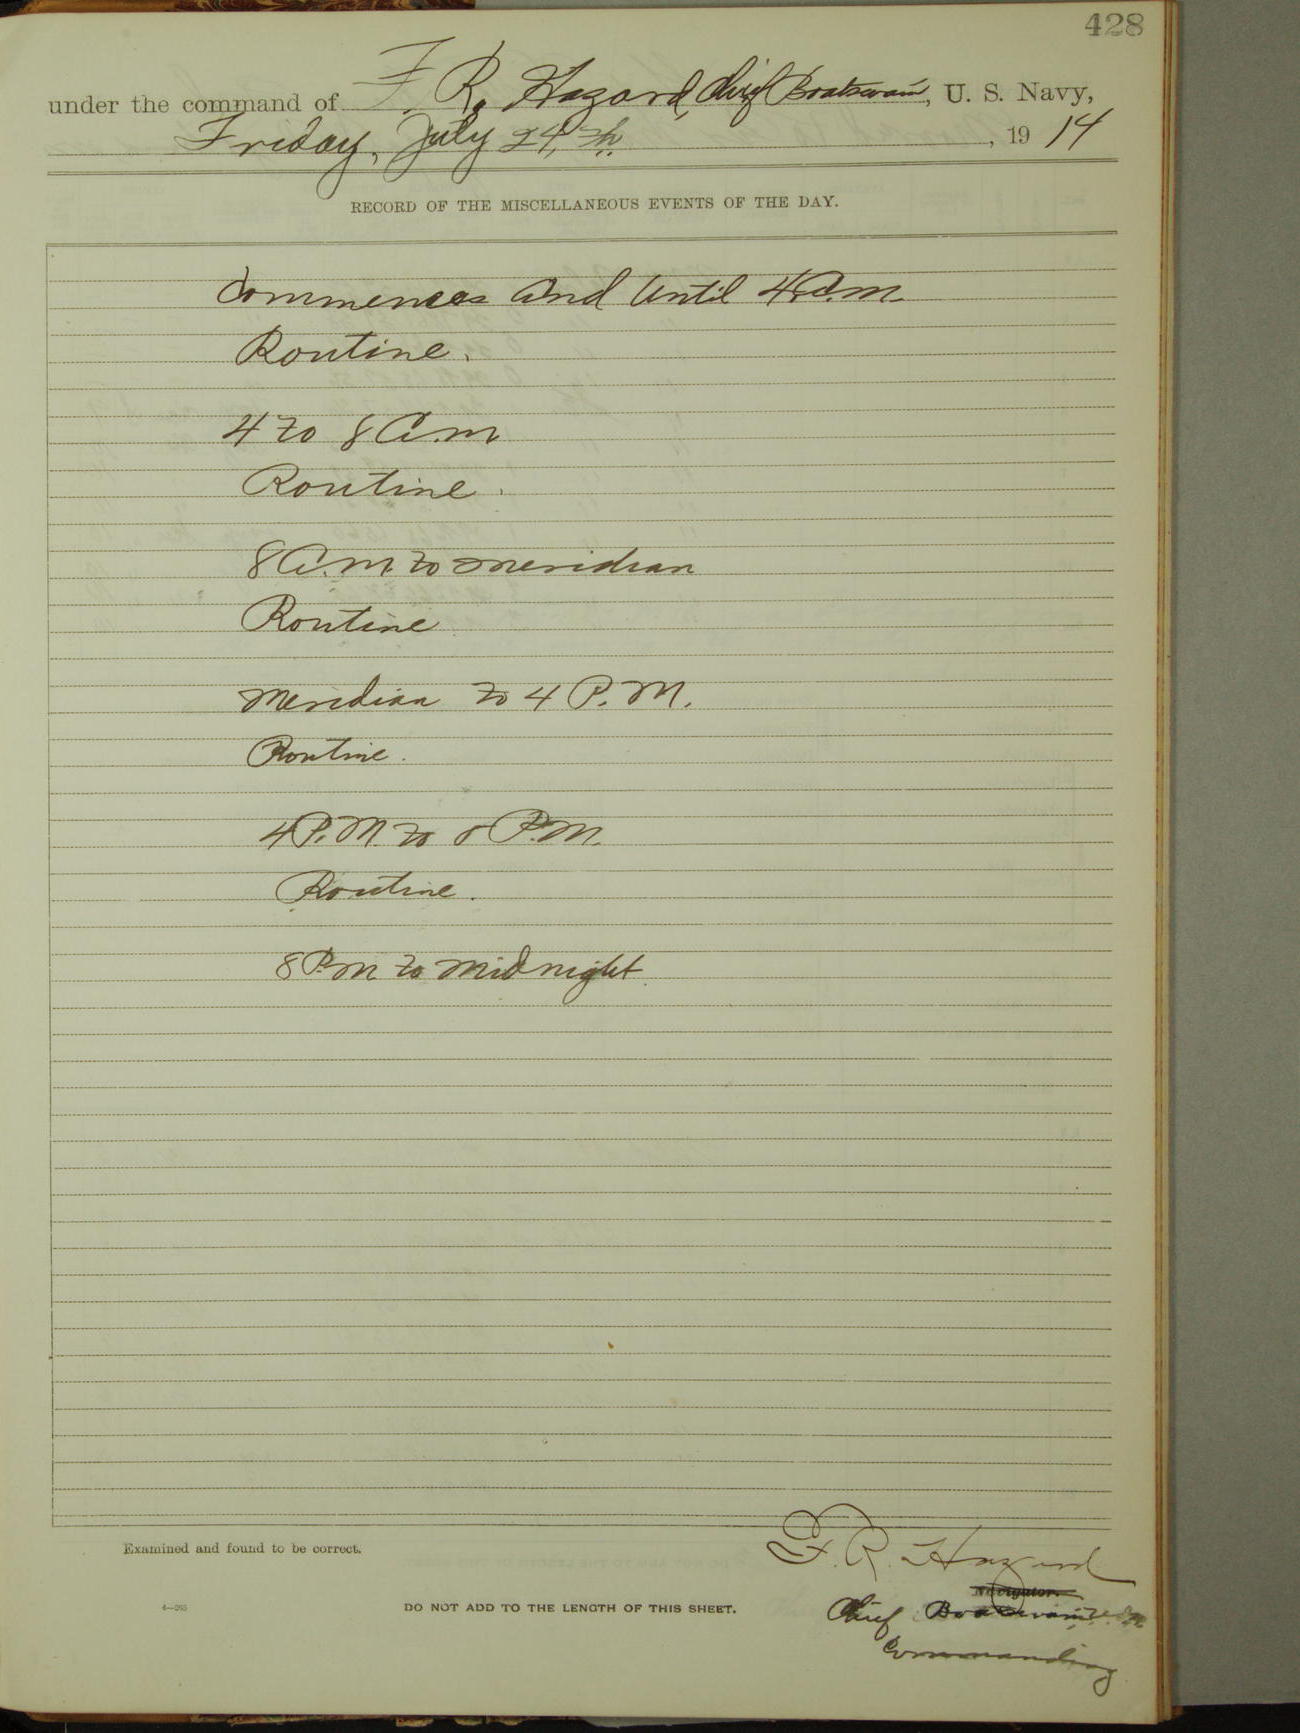 428
under the command of F. R. Hazard, Chief Boatswain, U. S. Navy,
Friday, July 24, th., 1914
RECORD OF THE MISCELLANEOUS EVENTS OF THE DAY.
Commences and Until 4 A.m.
Routine.
4 to 8 A.m
Routine.
8 A.m. to meridian
Routine
Meridian to 4 P.M.
Routine.
4 P.M. to 8 P.M.
Routine.
8 P.m to Midnight.
F. R. Hazard
Examined and found to be correct.
Navigator.
4—265
DO NOT ADD TO THE LENGTH OF THIS SHEET.
Chief Boatswain, U.S.N.
Commanding